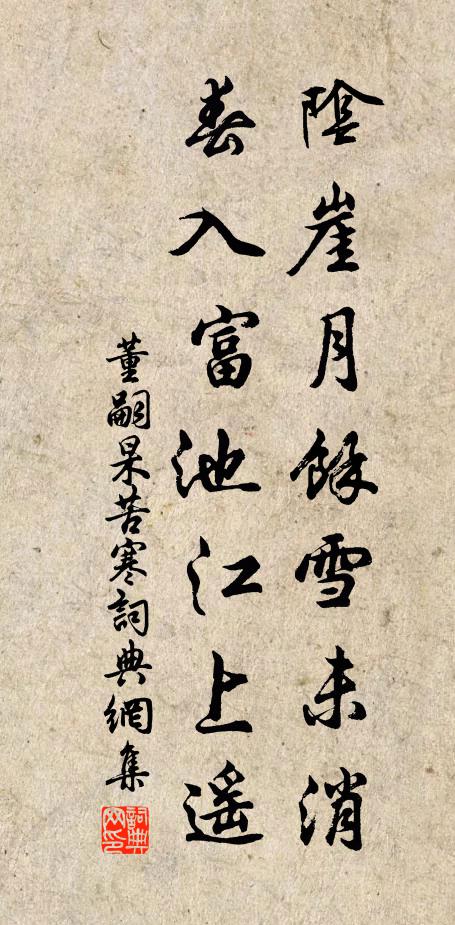 陰崖月餘雪未消
春入富池江上遥
董嗣杲苦寒詞典網集
詞典网印